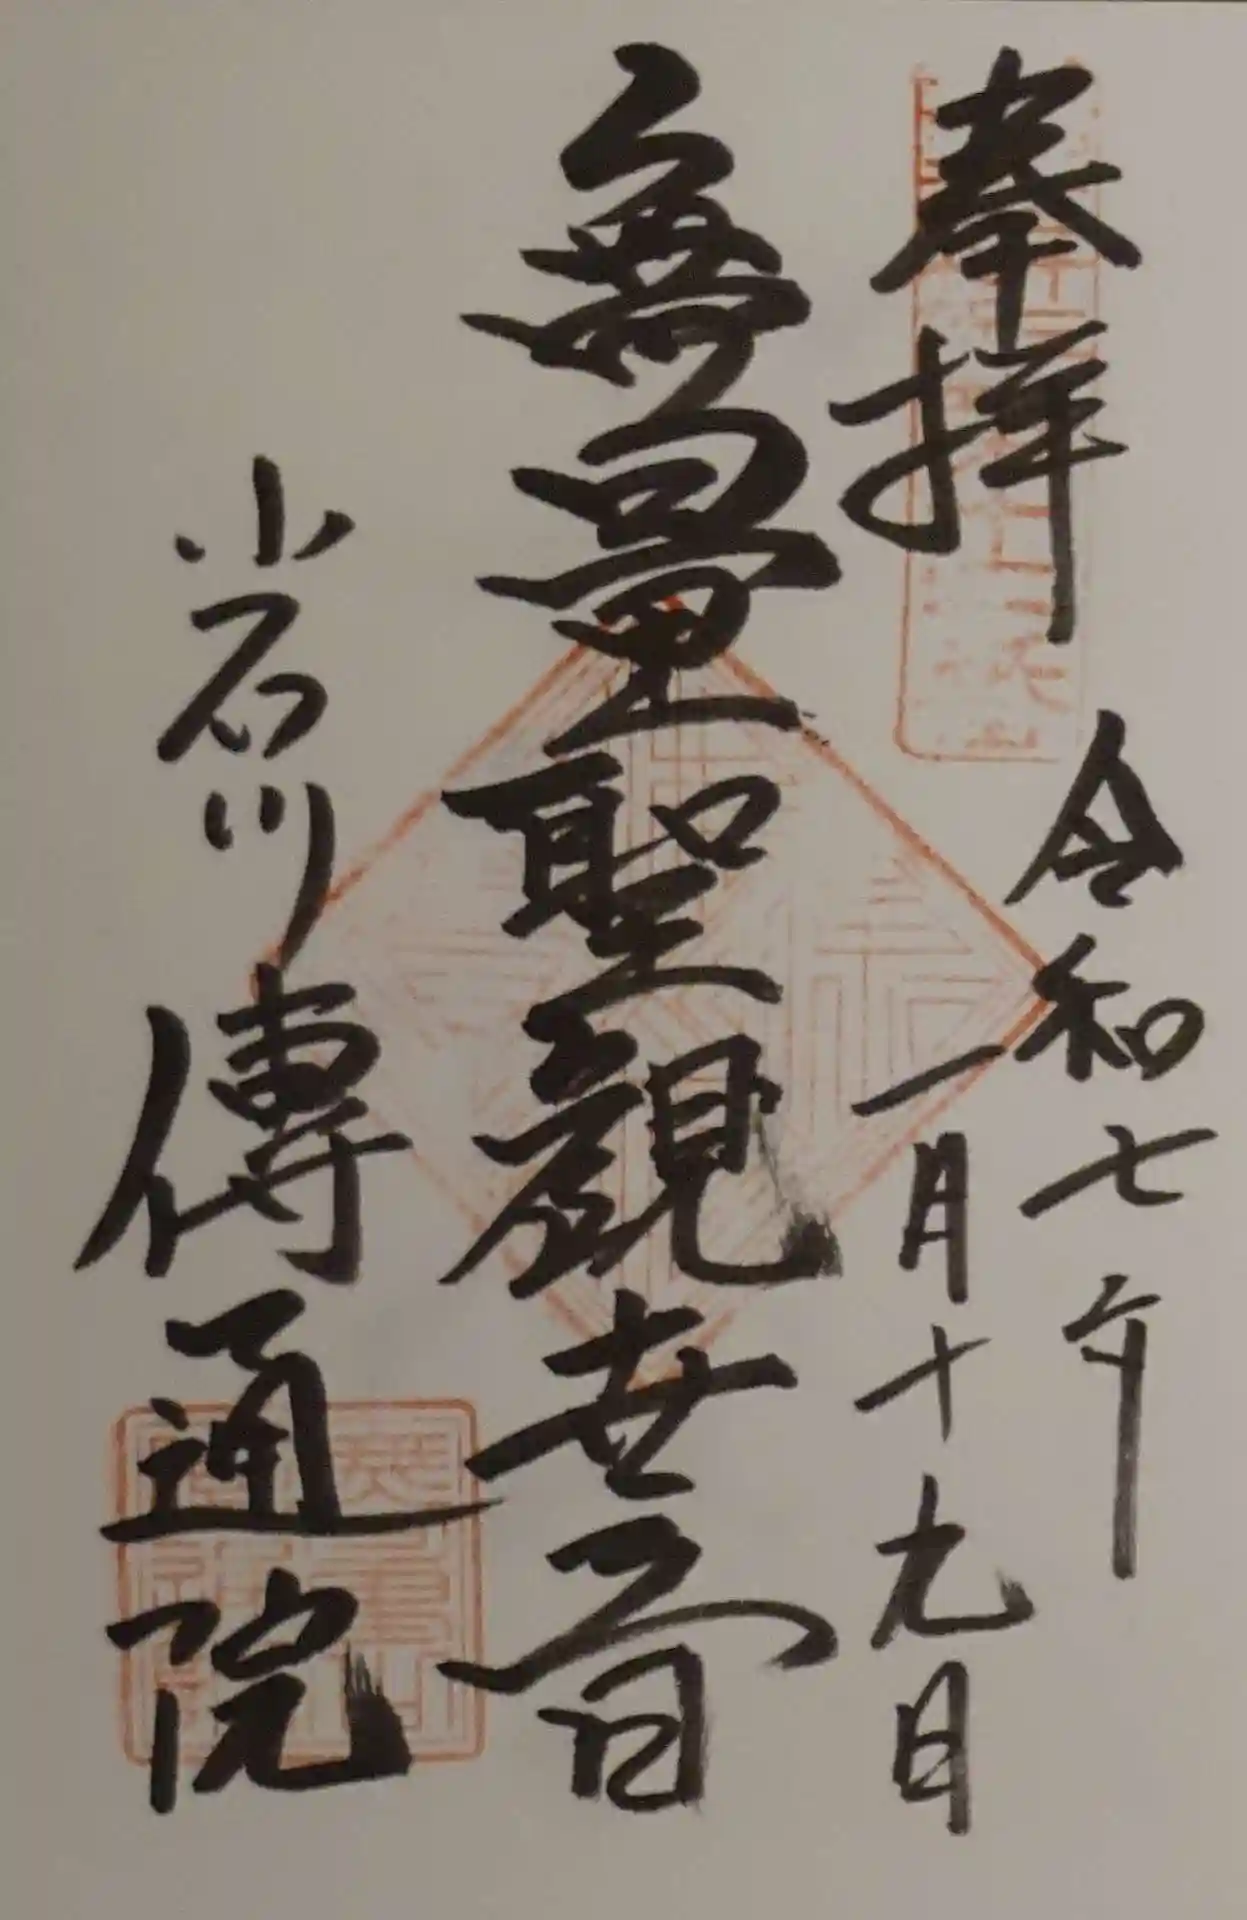 奉拝
令和七年
一月十九日
無量聖觀世音
小石川傳通院